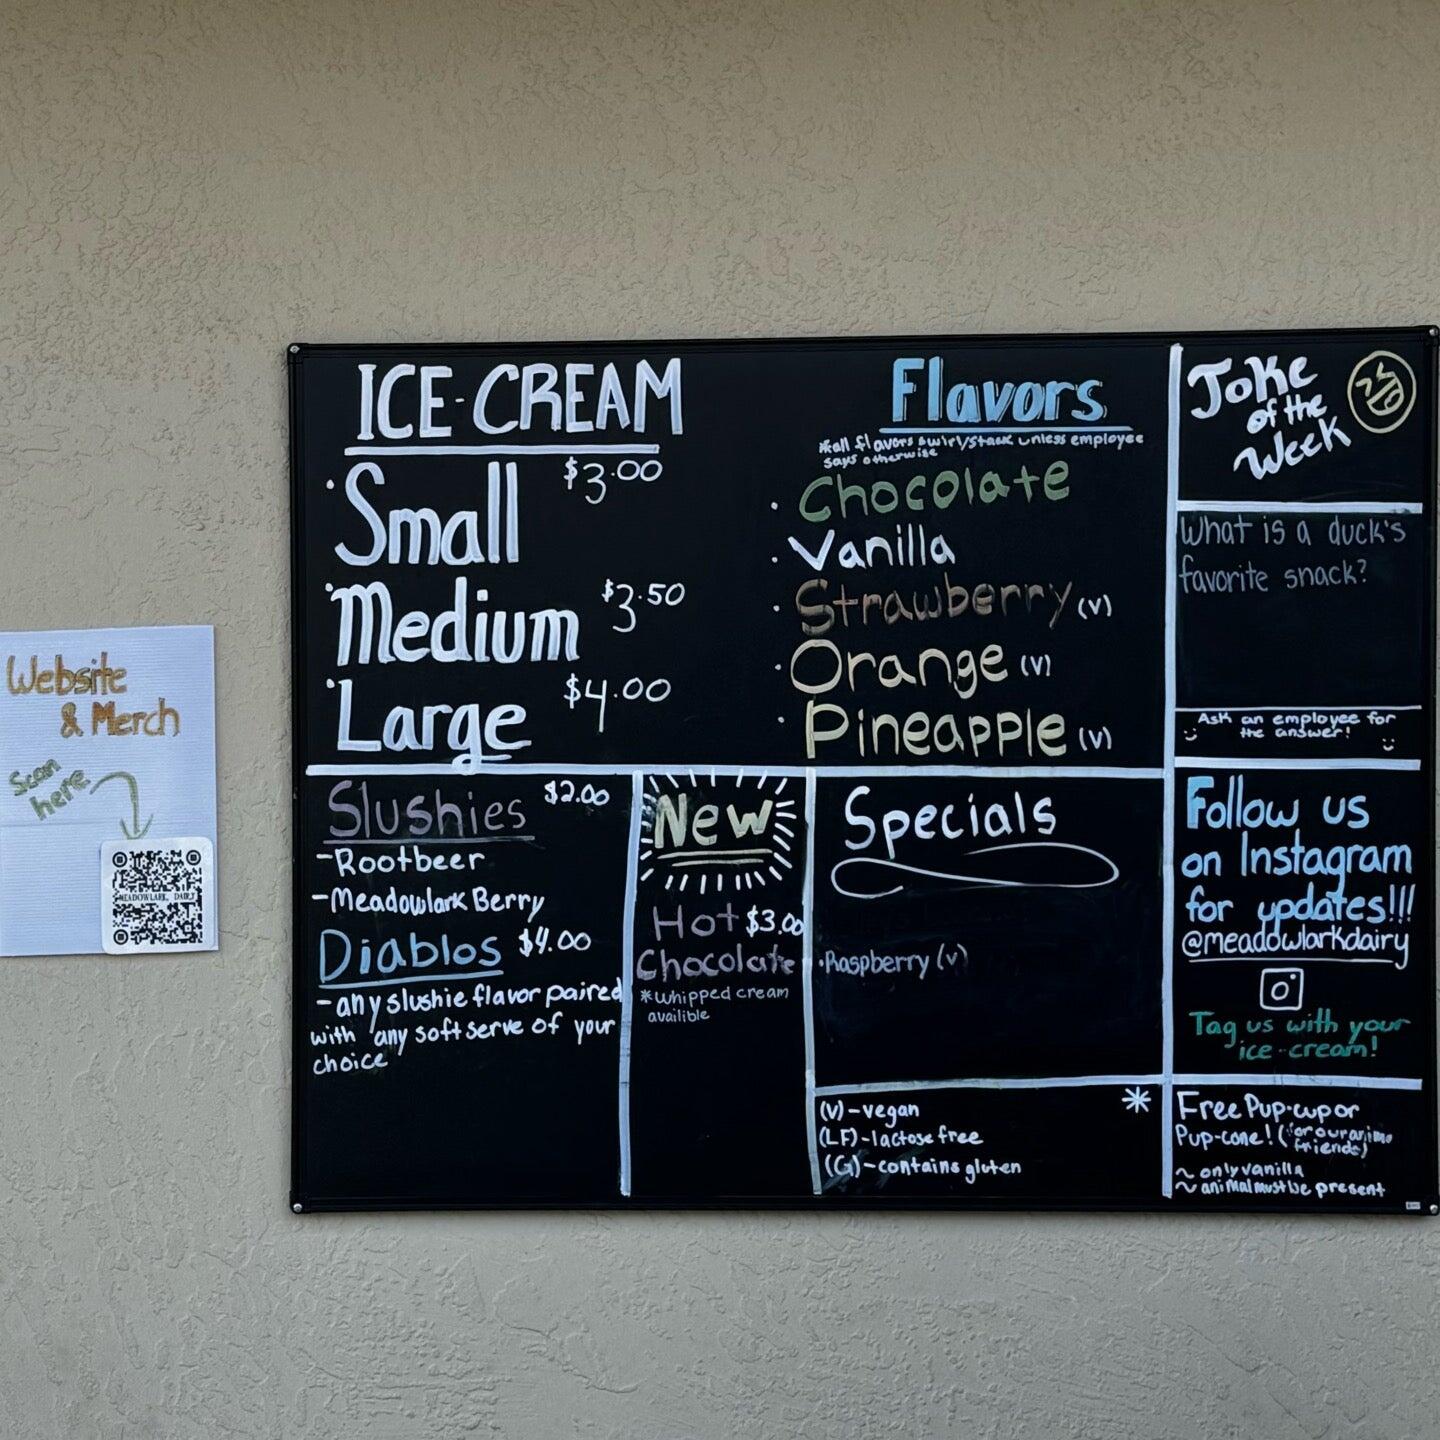 ICE-CREAM
· Small $3.00
· Medium $3.50
· Large $4.00
Flavors
*all flavors swirl/stack unless employee
says otherwise
· Chocolate
· Vanilla
· Strawberry (v)
· Orange (v)
· Pineapple (v)
Joke
of the
Week
What is a duck's
favorite snack?
Ask an employee for
the answer!
Slushies $2.00
-Rootbeer
-Meadowlark Berry
Diablos $4.00
-any slushie flavor paired
with any softserve of your
choice
New
Hot $3.00
Chocolate
*whipped cream
availible
Specials
·Raspberry (v)
(v)-vegan
(LF)-lactose free
(G)-contains gluten
*
Follow us
on Instagram
for updates!!!
@meadowlarkdairy
Tag us with your
ice-cream!
Free Pup-cup or
Pup-cone! (for our
friends)
~ only vanilla
~ animal must be present
Website
& Merch
Scan
here
MEADOWLARK, DAIRY